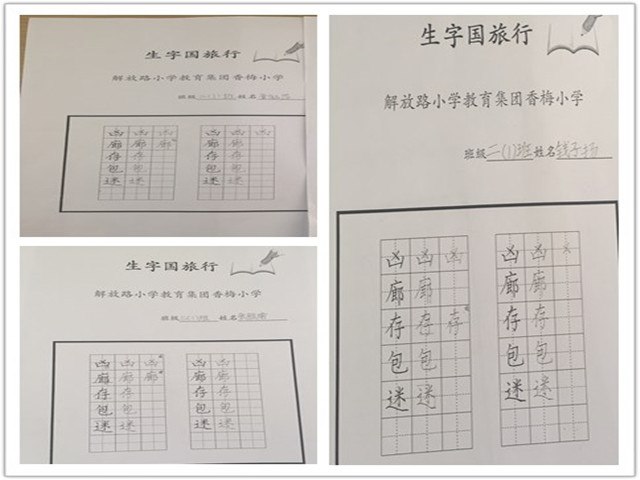 生字国旅行
解放路小学教育集团香梅小学
班级 二(1)班 姓名
凶 凶 凶 凶 凶 凶
廊 廊 廊 廊 廊
存 存 存 存
包 包 包 包
迷 迷 迷 迷
生字国旅行
解放路小学教育集团香梅小学
班级 二(1)班 姓名
凶 凶 凶 凶 凶
廊 廊 廊 廊 廊
存 存 存 存
包 包 包 包
迷 迷 迷 迷
生字国旅行
解放路小学教育集团香梅小学
班级 二(1)班 姓名 钱子扬
凶 凶 凶 凶 凶
廊 廊 廊 廊
存 存 存 存 存
包 包 包 包
迷 迷 迷 迷